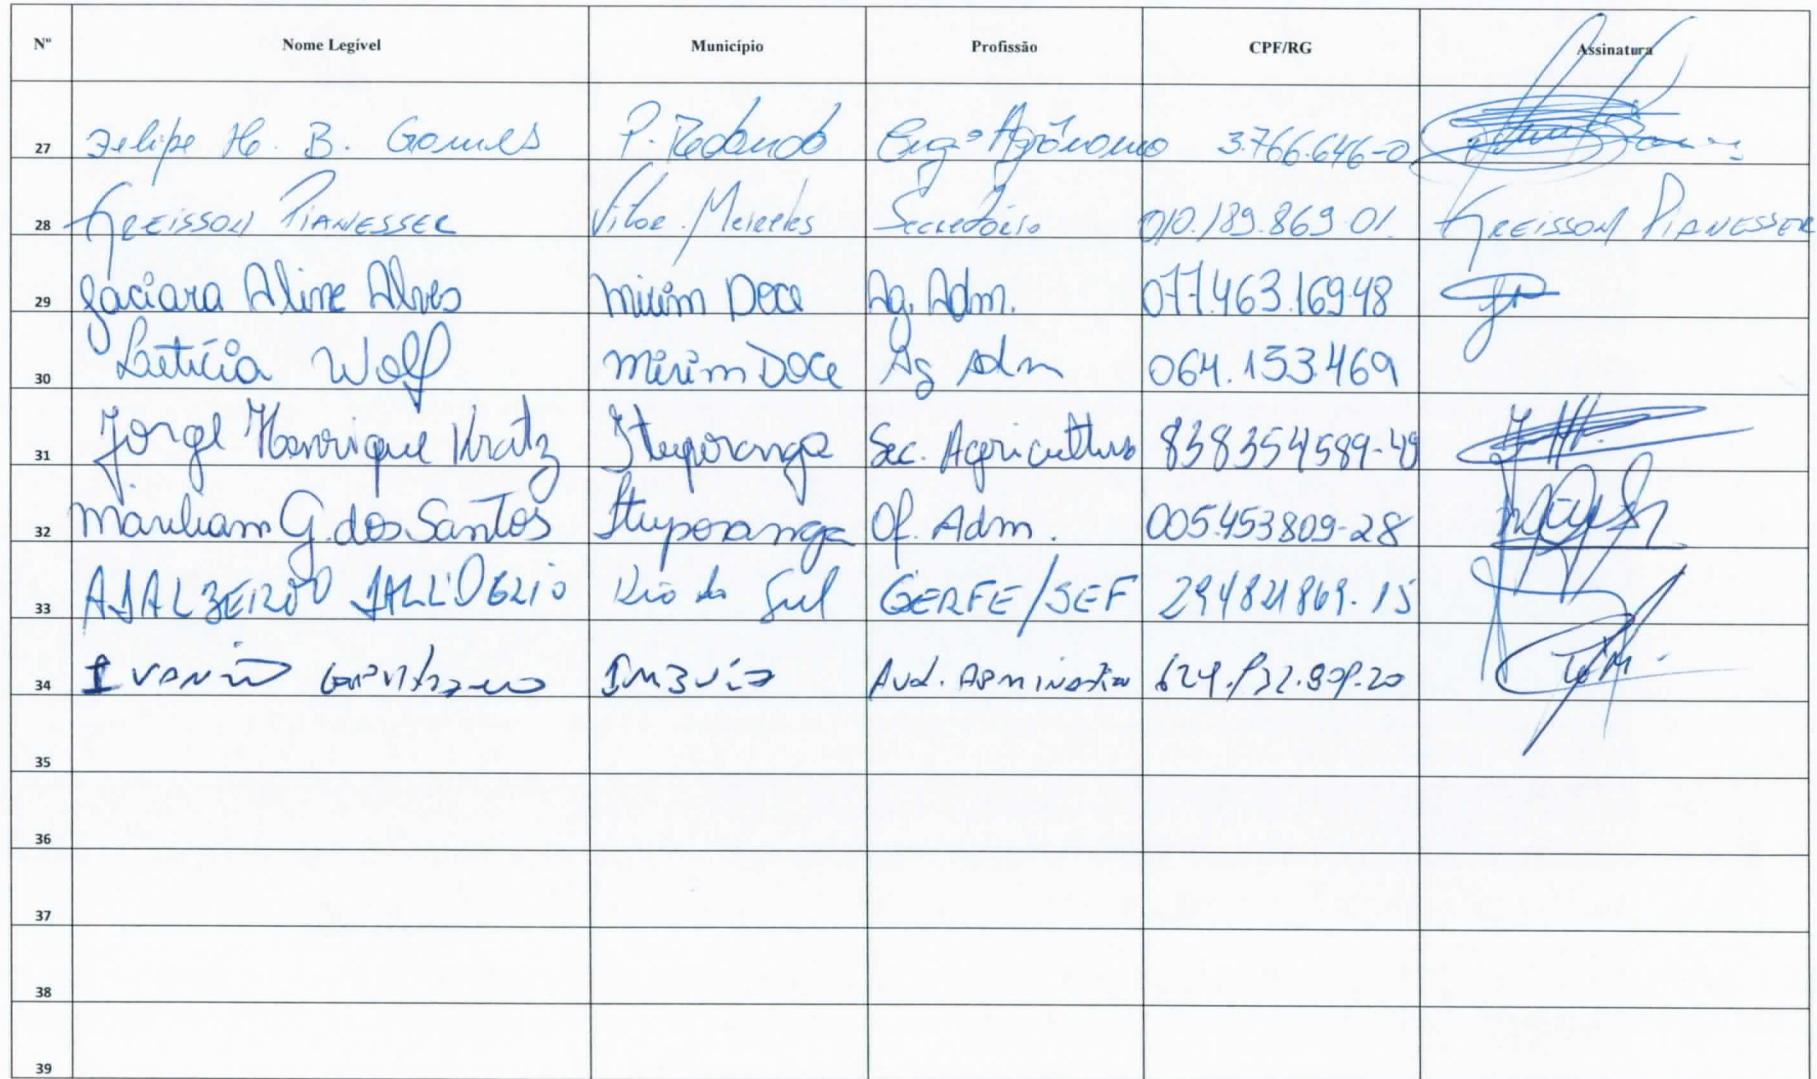 Nº Nome Legível Município Profissão CPF/RG Assinatura
27 Felipe H. B. Gomes P. Redondo Engº Agrônomo 3.766.646-0
28 Greisson Pianesser Vitor Meireles Secretário 010.189.869-01 Greisson Pianesser
29 Jaciara Aline Alves Mirim Doce Ag. Adm. 077.463.169.48
30 Laetícia Wolf Mirim Doce Ag Adm 064.133.469
31 Jorge Henrique Kratz Ituporanga Sec. Agricultura 838354589-49
32 Mariliam G. dos Santos Ituporanga Of. Adm. 005.453809-28
33 Rio do Sul GERFE/SEF 294821869-15
34 Ivanio Imbuia
35
36
37
38
39